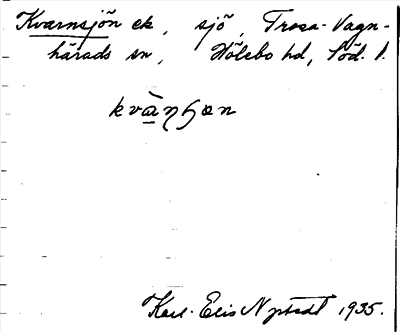 Kvarnsjön ek, sjö, Trosa-Vagn-
härads sn, Hölebo hd, Söd. l.
kvà̱ŋɧɷn
Karl-Elis Nystedt 1935.